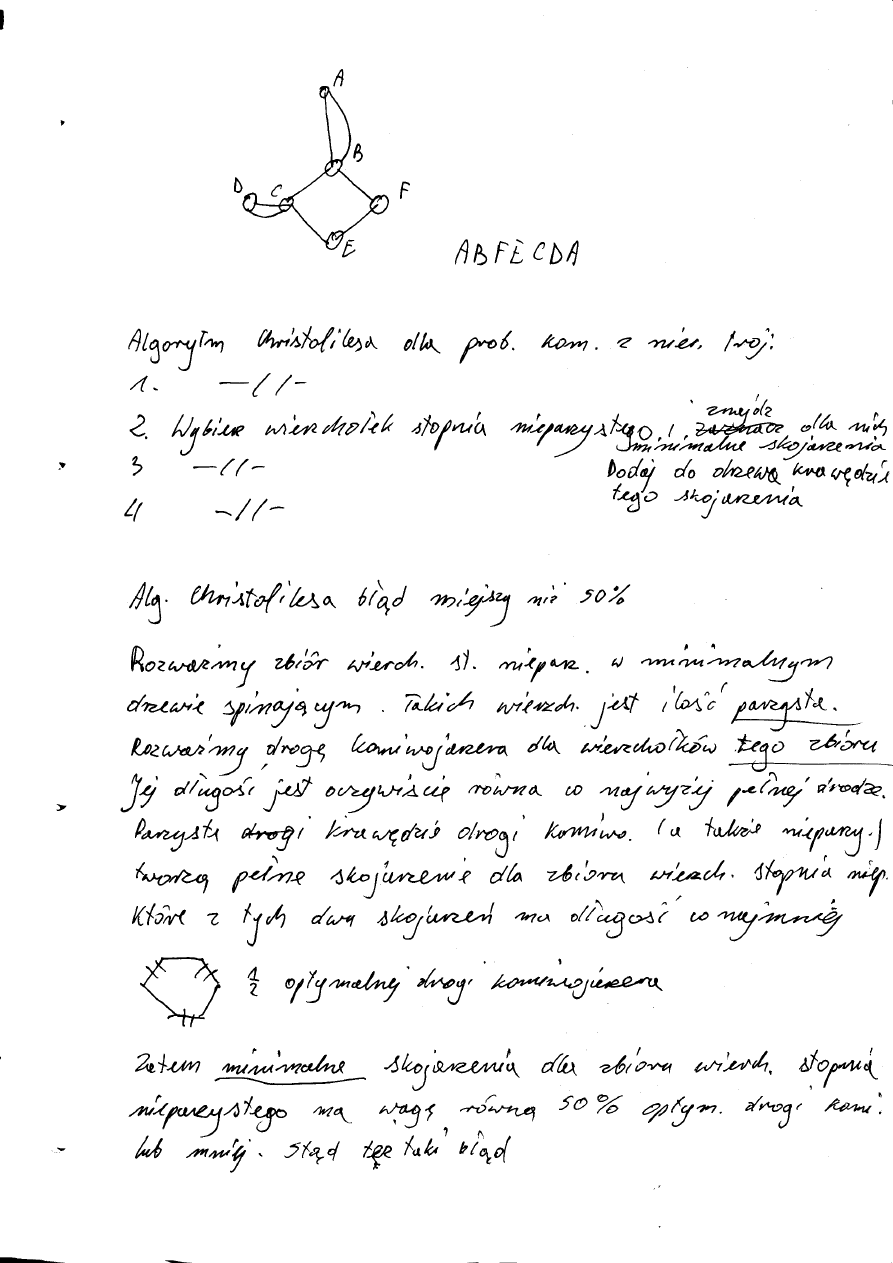 A
B
D C F
E
ABFECDA
Algorytm Christofilesa dla prob. kom. z nier. trój.
1. —//—
2. Wybierz wierzchołek stopnia nieparzystego i zaznacz znajdz dla nich
minimalne skojarzenia
3 —//— Dodaj do drzewa krawędzie
tego skojarzenia
4 —//—
Alg. Christofilesa błąd miejszy niż 50%
Rozważmy zbiór wierzch. st. niepaz. w minimalnym
drzewie spinającym. Takich wierzch. jest ilość parzysta.
Rozważmy drogę komiwojażera dla wierzchołków tego zbioru
Jej długość jest oczywiście równa co najwyżej pełnej drodze.
Parzyste drogi krawędzie drogi komiwo. (a także niepazy.)
tworzą pełne skojarzenie dla zbioru wierzch. stopnia niep.
Które z tych dwa skojarzeń ma długość co najmniej
1/2 optymalnej drogi komiwojażera
Zatem minimalne skojarzenia dla zbioru wierzch. stopnia
nieparzystego ma wagę równą 50% optym. drogi komi.
lub mniej. Stąd też taki błąd